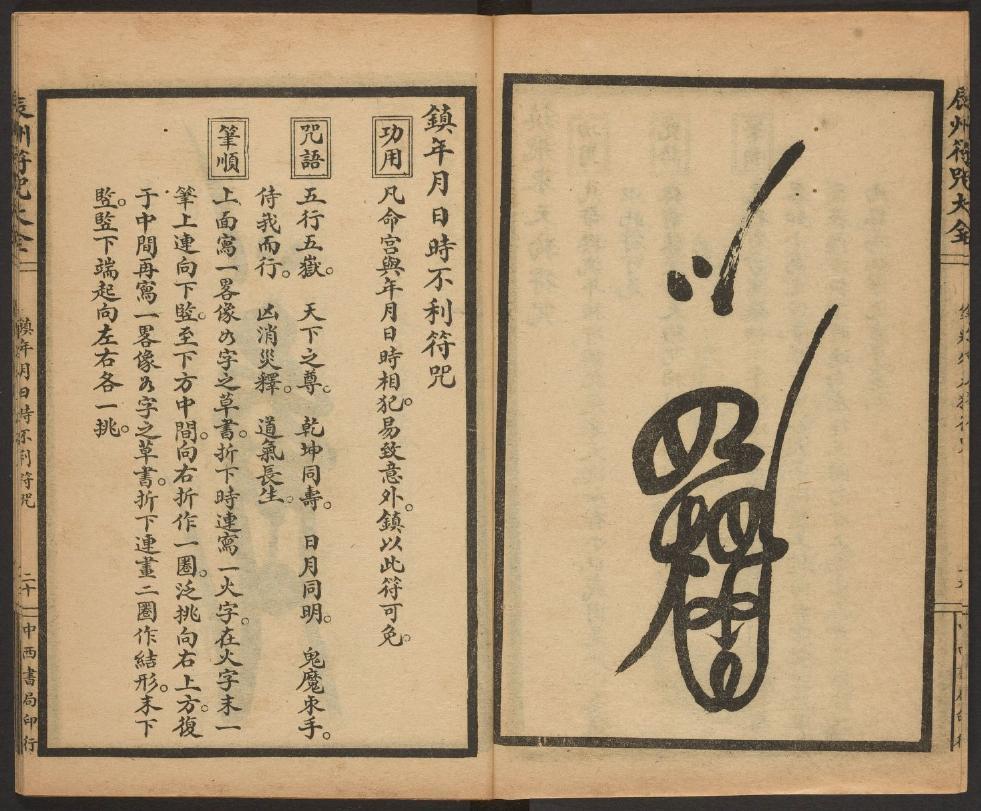 辰州符咒大全
鎮年月日時不利符咒
功用
凡命宮與年月日時相犯。易致意外。鎮以此符可免。
咒語
五行五嶽。天下之尊。乾坤同壽。日月同明。鬼魔束手。
侍我而行。凶消災釋。道氣長生。
筆順
上面寫一畧像㐅字之草書。折下時連寫一火字。在火字末一
筆上連向下監。至下方中間。向右折作一圈。泛挑向右上方。復
于中間再寫一畧像㐅字之草書。折下連畫二圈作結形。末下
監。監下端起向左右各一挑。
辰州符咒大全
鎮年月日時不利符咒
二十
中西書局印行